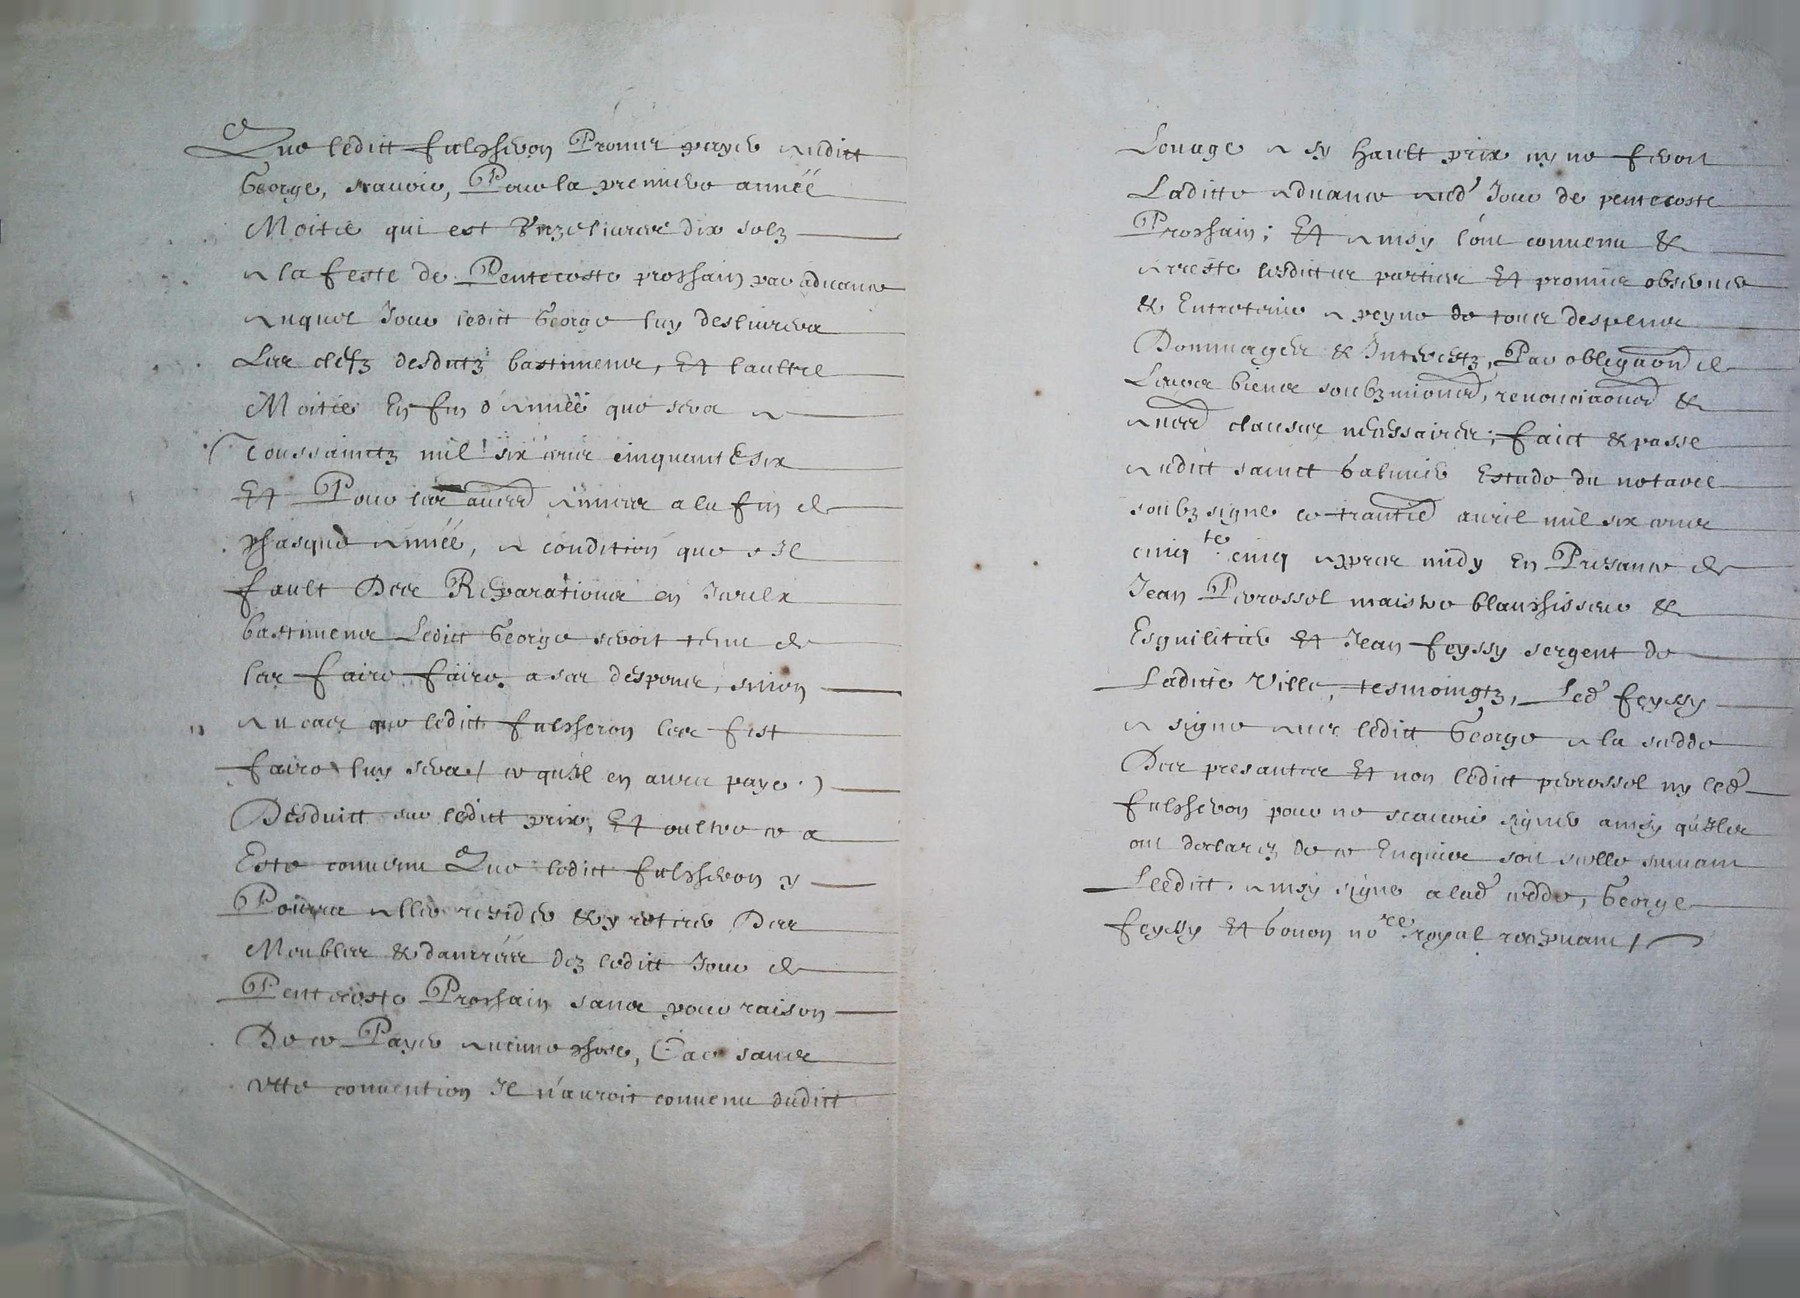 Que ledict fulcheron Promet payer audict
George, scauoir, Pour la premiere année
Moitié qui est Vnze liures dix solz
a la feste de Pentecoste prochain par aduance
auquel Jour ledict George luy desliurera
Les clefz desdictz bastimens, Et l'aultre
Moitié En fin d'année que sera a
Toussainctz mil six cens cinquante six
Et Pour les aultres années a la fin de
chasque année, a condition que s'Il
fault Des Reparations en Iceulx
bastimens Ledict George seroit tenu de
les faire faire a ses despens, sinon
au cas que ledict fulcheron les fist
faire luy sera ce qu'il en aura payé
Desduict sur ledict prix, Et oultre ce a
Esté conuenu Que ledict fulcheron y
Pourra aller resider & y retirer Des
Meubles & danrées dez ledict Jour de
Pentecoste Prochain sans pour raison
De ce Payer aucune chose, Car sans
cette conuention Il n'auroit conuenu dudict
Louage a sy hault prix ny ne feroit
Laditte aduance aud Jour de pentecoste
Prochain; Et ainsy l'ont conuenu &
arresté lesdictes parties Et promis obseruer
& Entretenir a peyne de tous despens
Dommages & Interestz, Par obligaon de
Leurs biens soubzmions, renonciaons &
aues clauses necessaires; faict & passé
audict sainct Galmier Estude du notaire
soubzsigné ce trantie auril mil six cens
cinq te cinq apres midy En Presance de
Jean Perossel maistre blanchisseur &
Esguilitier Et Jean feyssy sergent de
Laditte Ville, tesmoingtz, Led feyssy
a signé auec ledict George a la cedde
Des presantes Et non ledict perossel ny led
fulcheron pour ne scauoir signer ainsy qu'Ilz
ont declarez de ce Enquis soit scellé suiuant
Leedict. ainsy signé a lad cedde, George
feyssy Et Gonon no re royal receuant